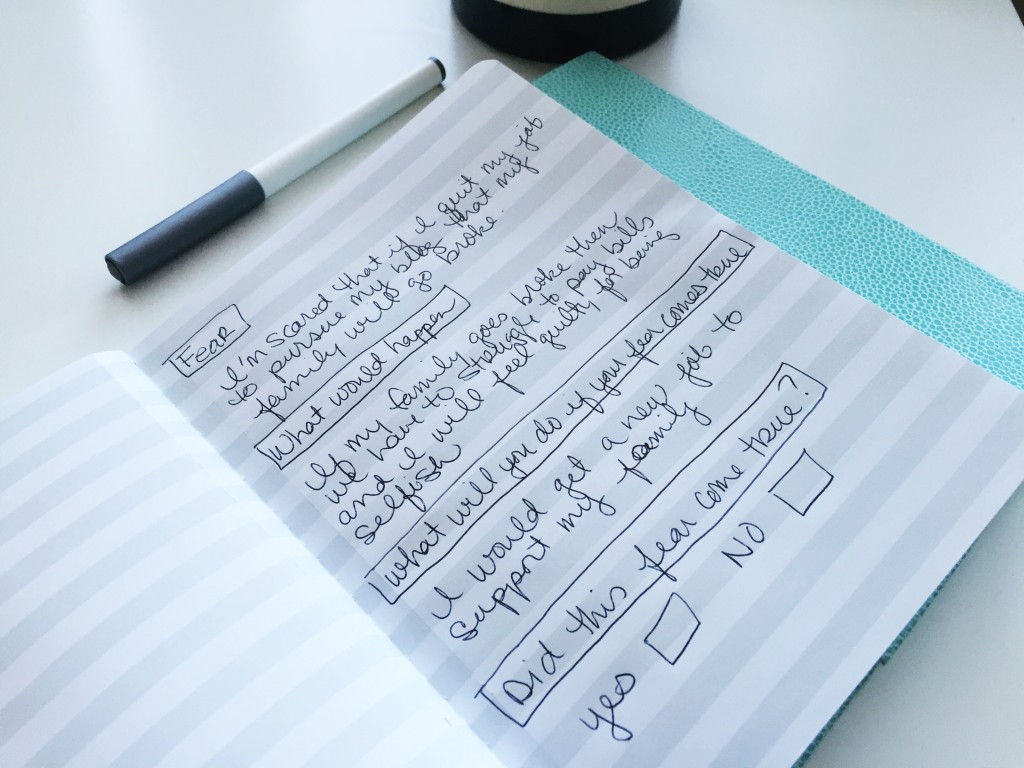 Fear
I'm scared that if I quit my job
to pursue my blog that my
family will go broke.
What would happen
If my family goes broke then
we have to struggle to pay bills
and I will feel guilty for being
selfish
What will you do if you fear comes true
I would get a new job to
support my family
Did this fear come true?
yes NO